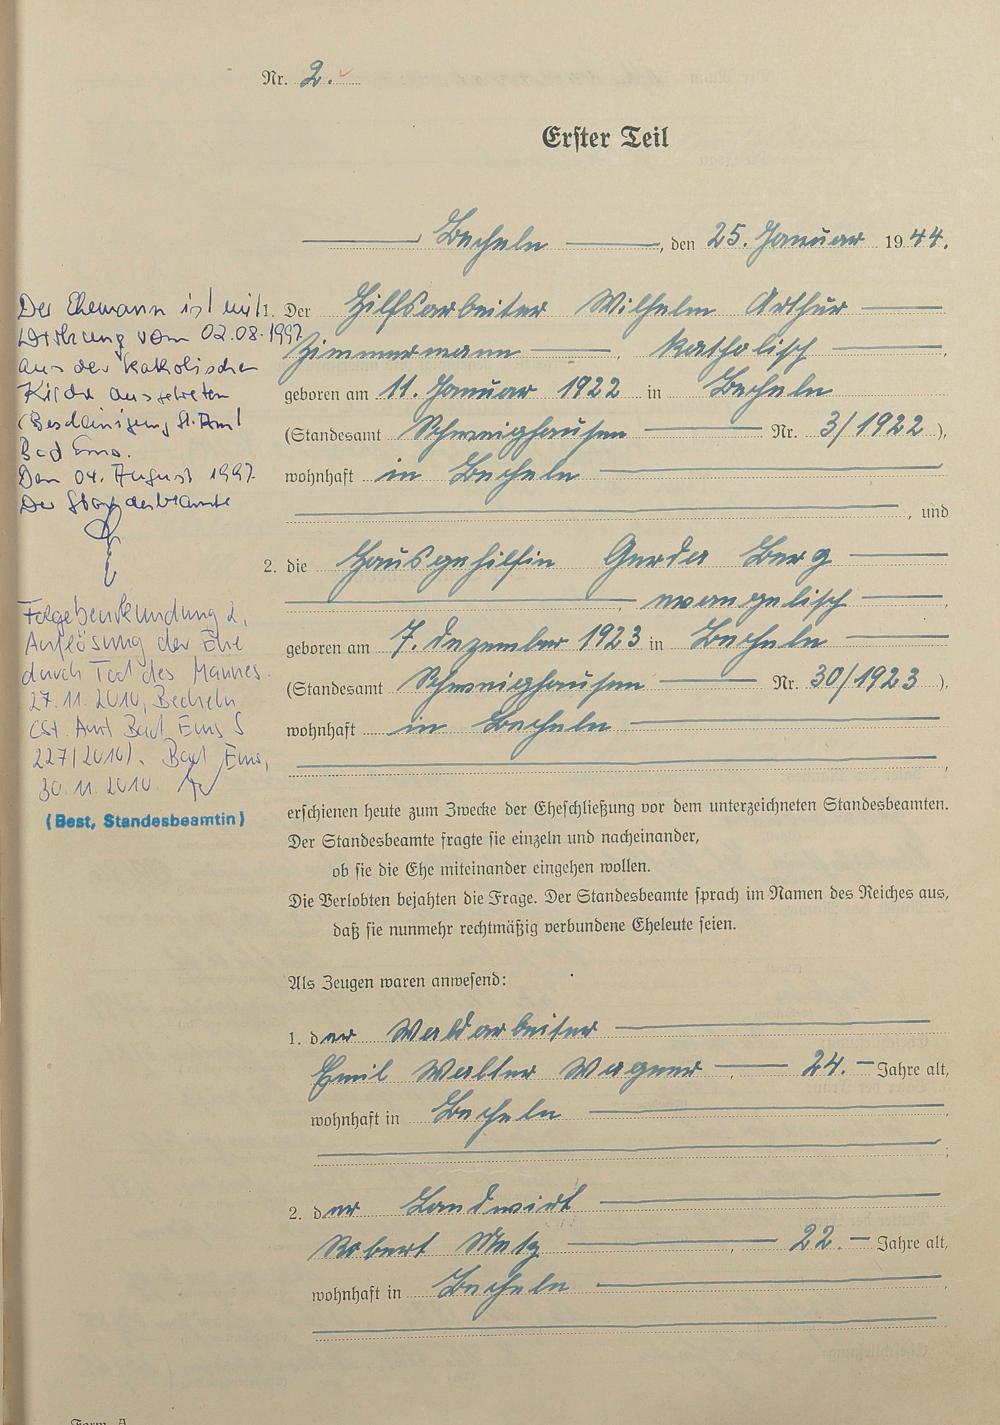 Nr. 2.
Erster Teil
Becheln, den 25. Januar 1944.
1. Der Hilfsarbeiter Wilhelm Arthur
Zimmermann, katholisch,
geboren am 11. Januar 1922 in Becheln
(Standesamt Schweighausen Nr. 3/1922),
wohnhaft in Becheln
, und
2. die Hausgehilfin Gerda Berg
, evangelisch,
geboren am 7. Dezember 1923 in Becheln
(Standesamt Schweighausen Nr. 30/1923),
wohnhaft in Becheln
,
erschienen heute zum Zwecke der Eheschließung vor dem unterzeichneten Standesbeamten.
Der Standesbeamte fragte sie einzeln und nacheinander,
ob sie die Ehe miteinander eingehen wollen.
Die Verlobten bejahten die Frage. Der Standesbeamte sprach im Namen des Reiches aus,
daß sie nunmehr rechtmäßig verbundene Eheleute seien.
Als Zeugen waren anwesend:
1. der Waldarbeiter
Emil Walter Wagner, 24. Jahre alt,
wohnhaft in Becheln
;
2. der Landwirt
Robert Metz, 22. Jahre alt,
wohnhaft in Becheln
Der Ehemann ist mit
Wirkung vom 02.08.1997
aus der katholischen
Kirche ausgetreten
(Bescheinigung St.Amt
Bad Ems.
Den 04. August 1997
Der Standesbeamte
Folgebeurkundung 2,
Auflösung der Ehe
durch Tod des Mannes.
27.11.2010, Becheln
(St. Amt Bad Ems S
227/2010). Bad Ems,
30.11.2010
(Best, Standesbeamtin)
Form. A